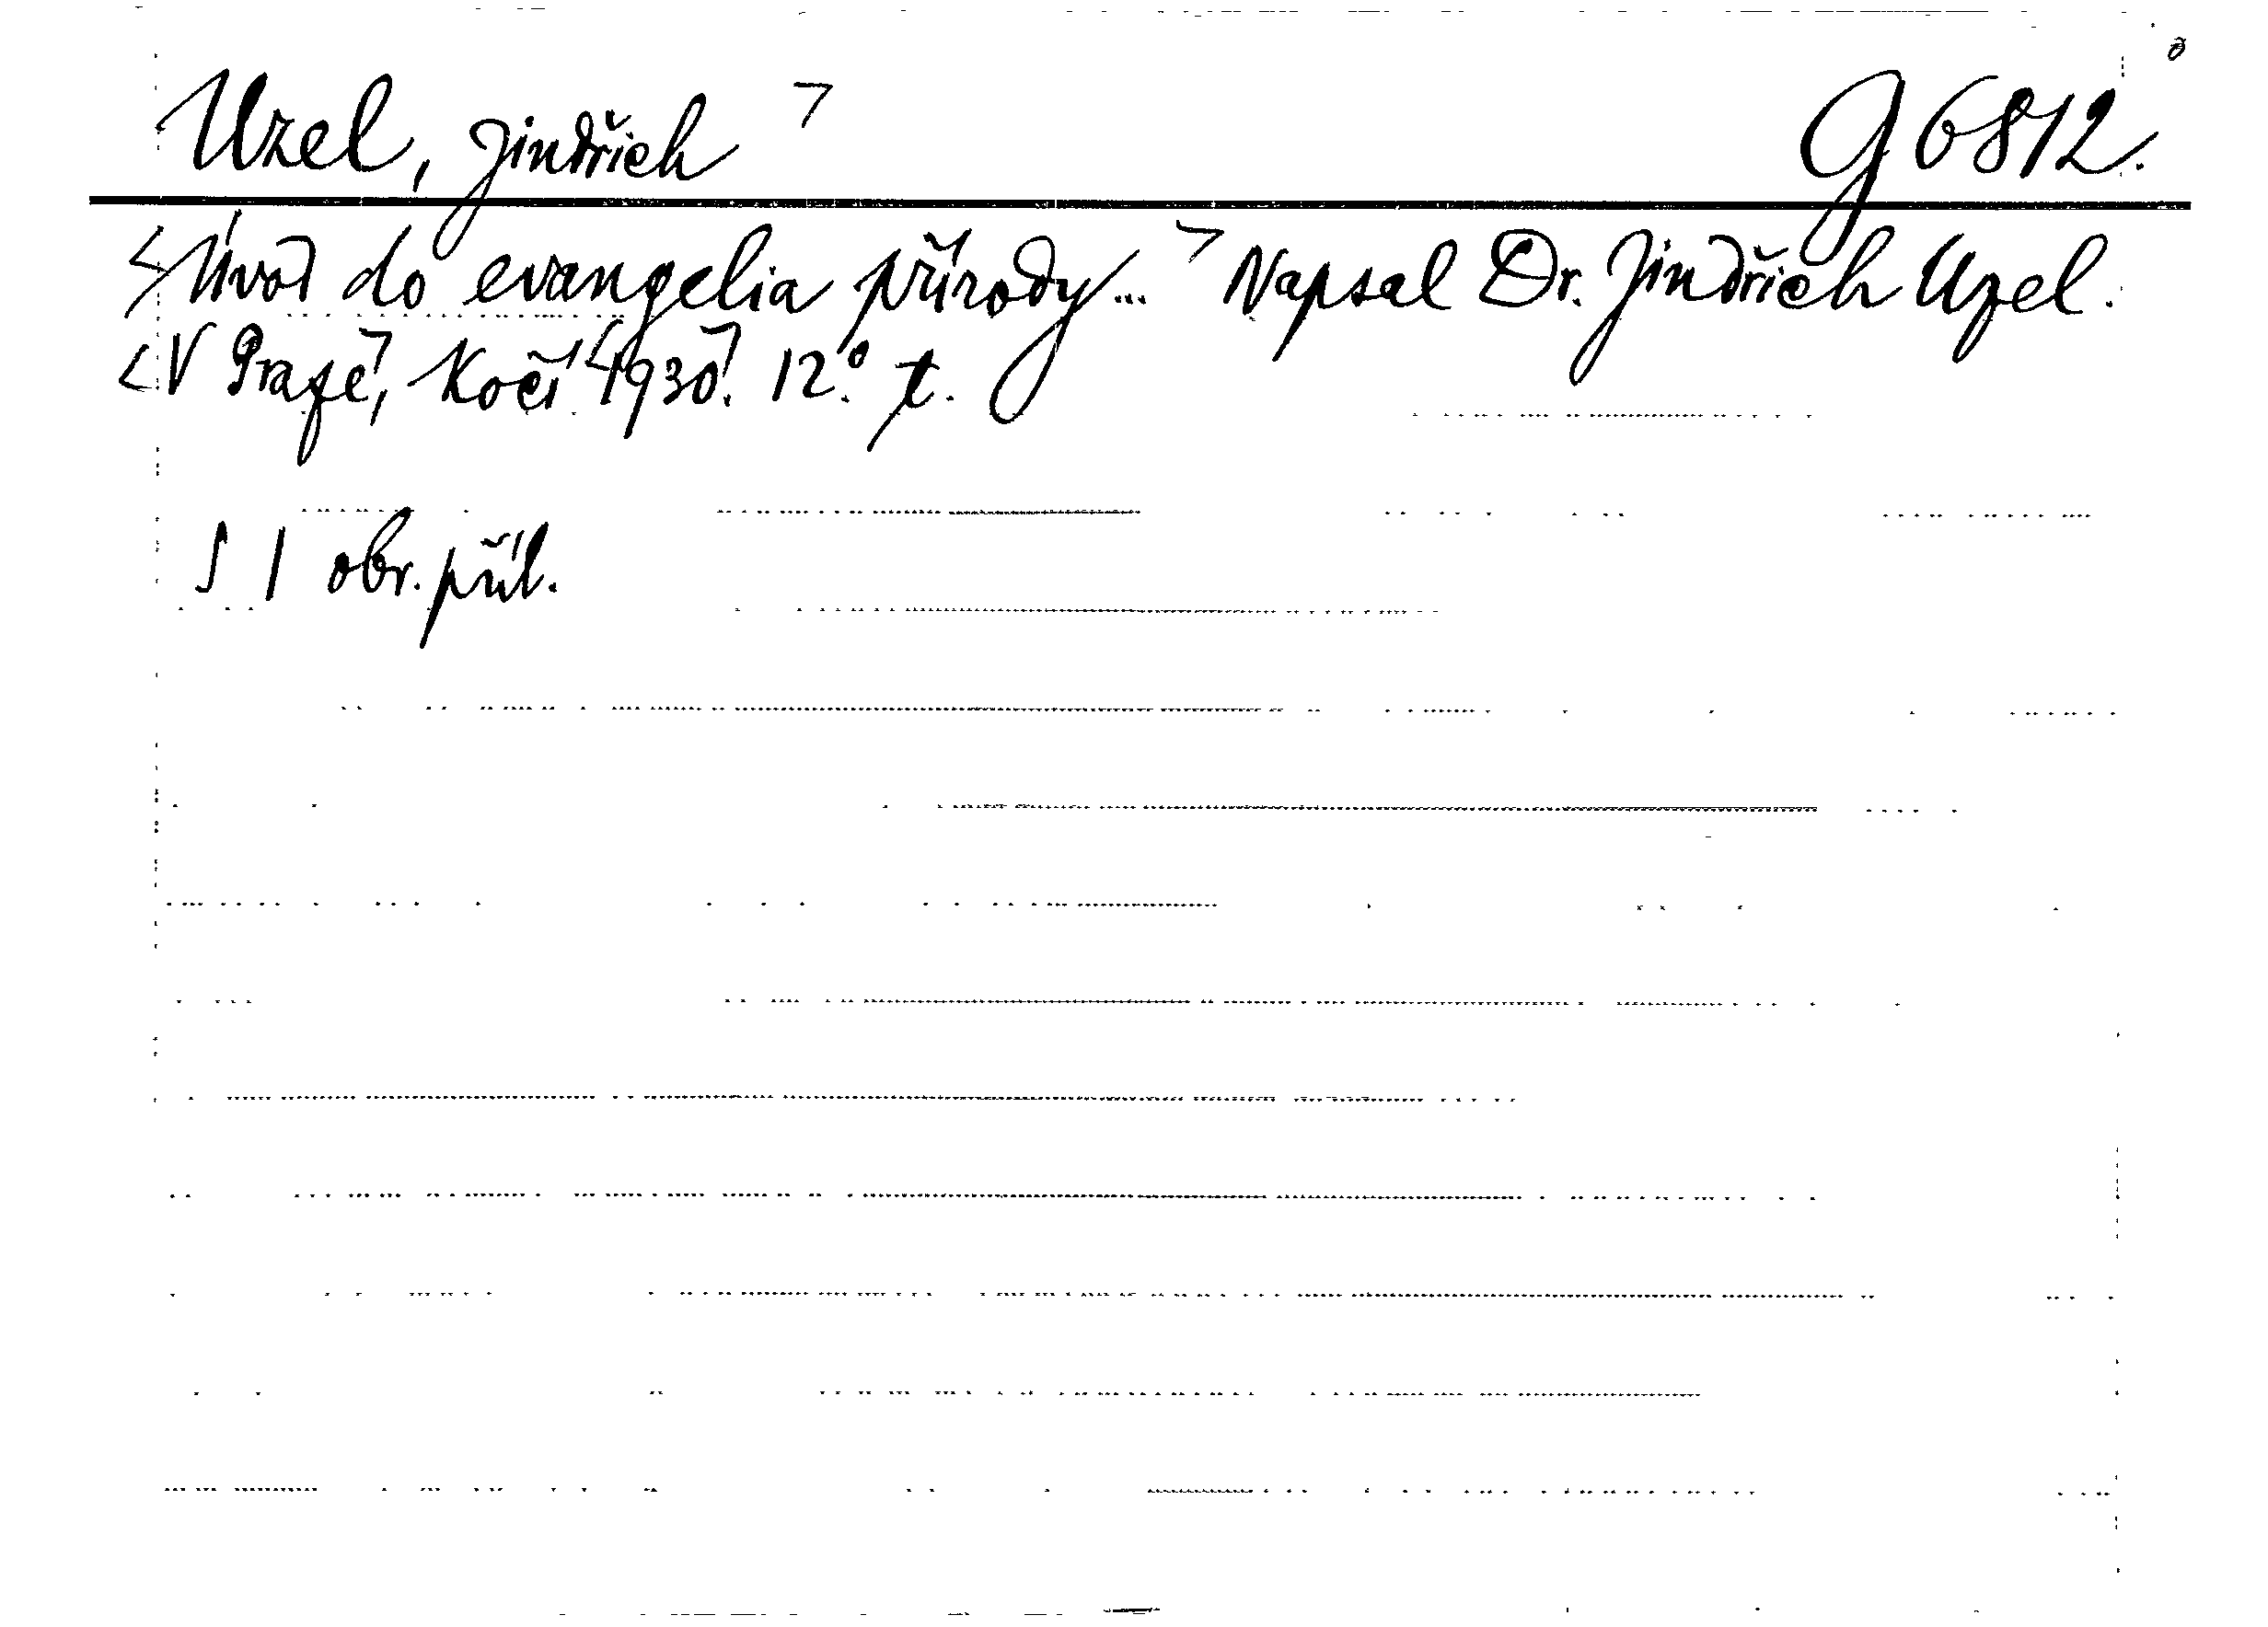 Uzel, Jindřich G 6812.
Úvod do evangelia přírody... Napsal Dr. Jindřich Uzel.
V Praze, Kočí 1930. 12.° t.
S 1 obr. příl.